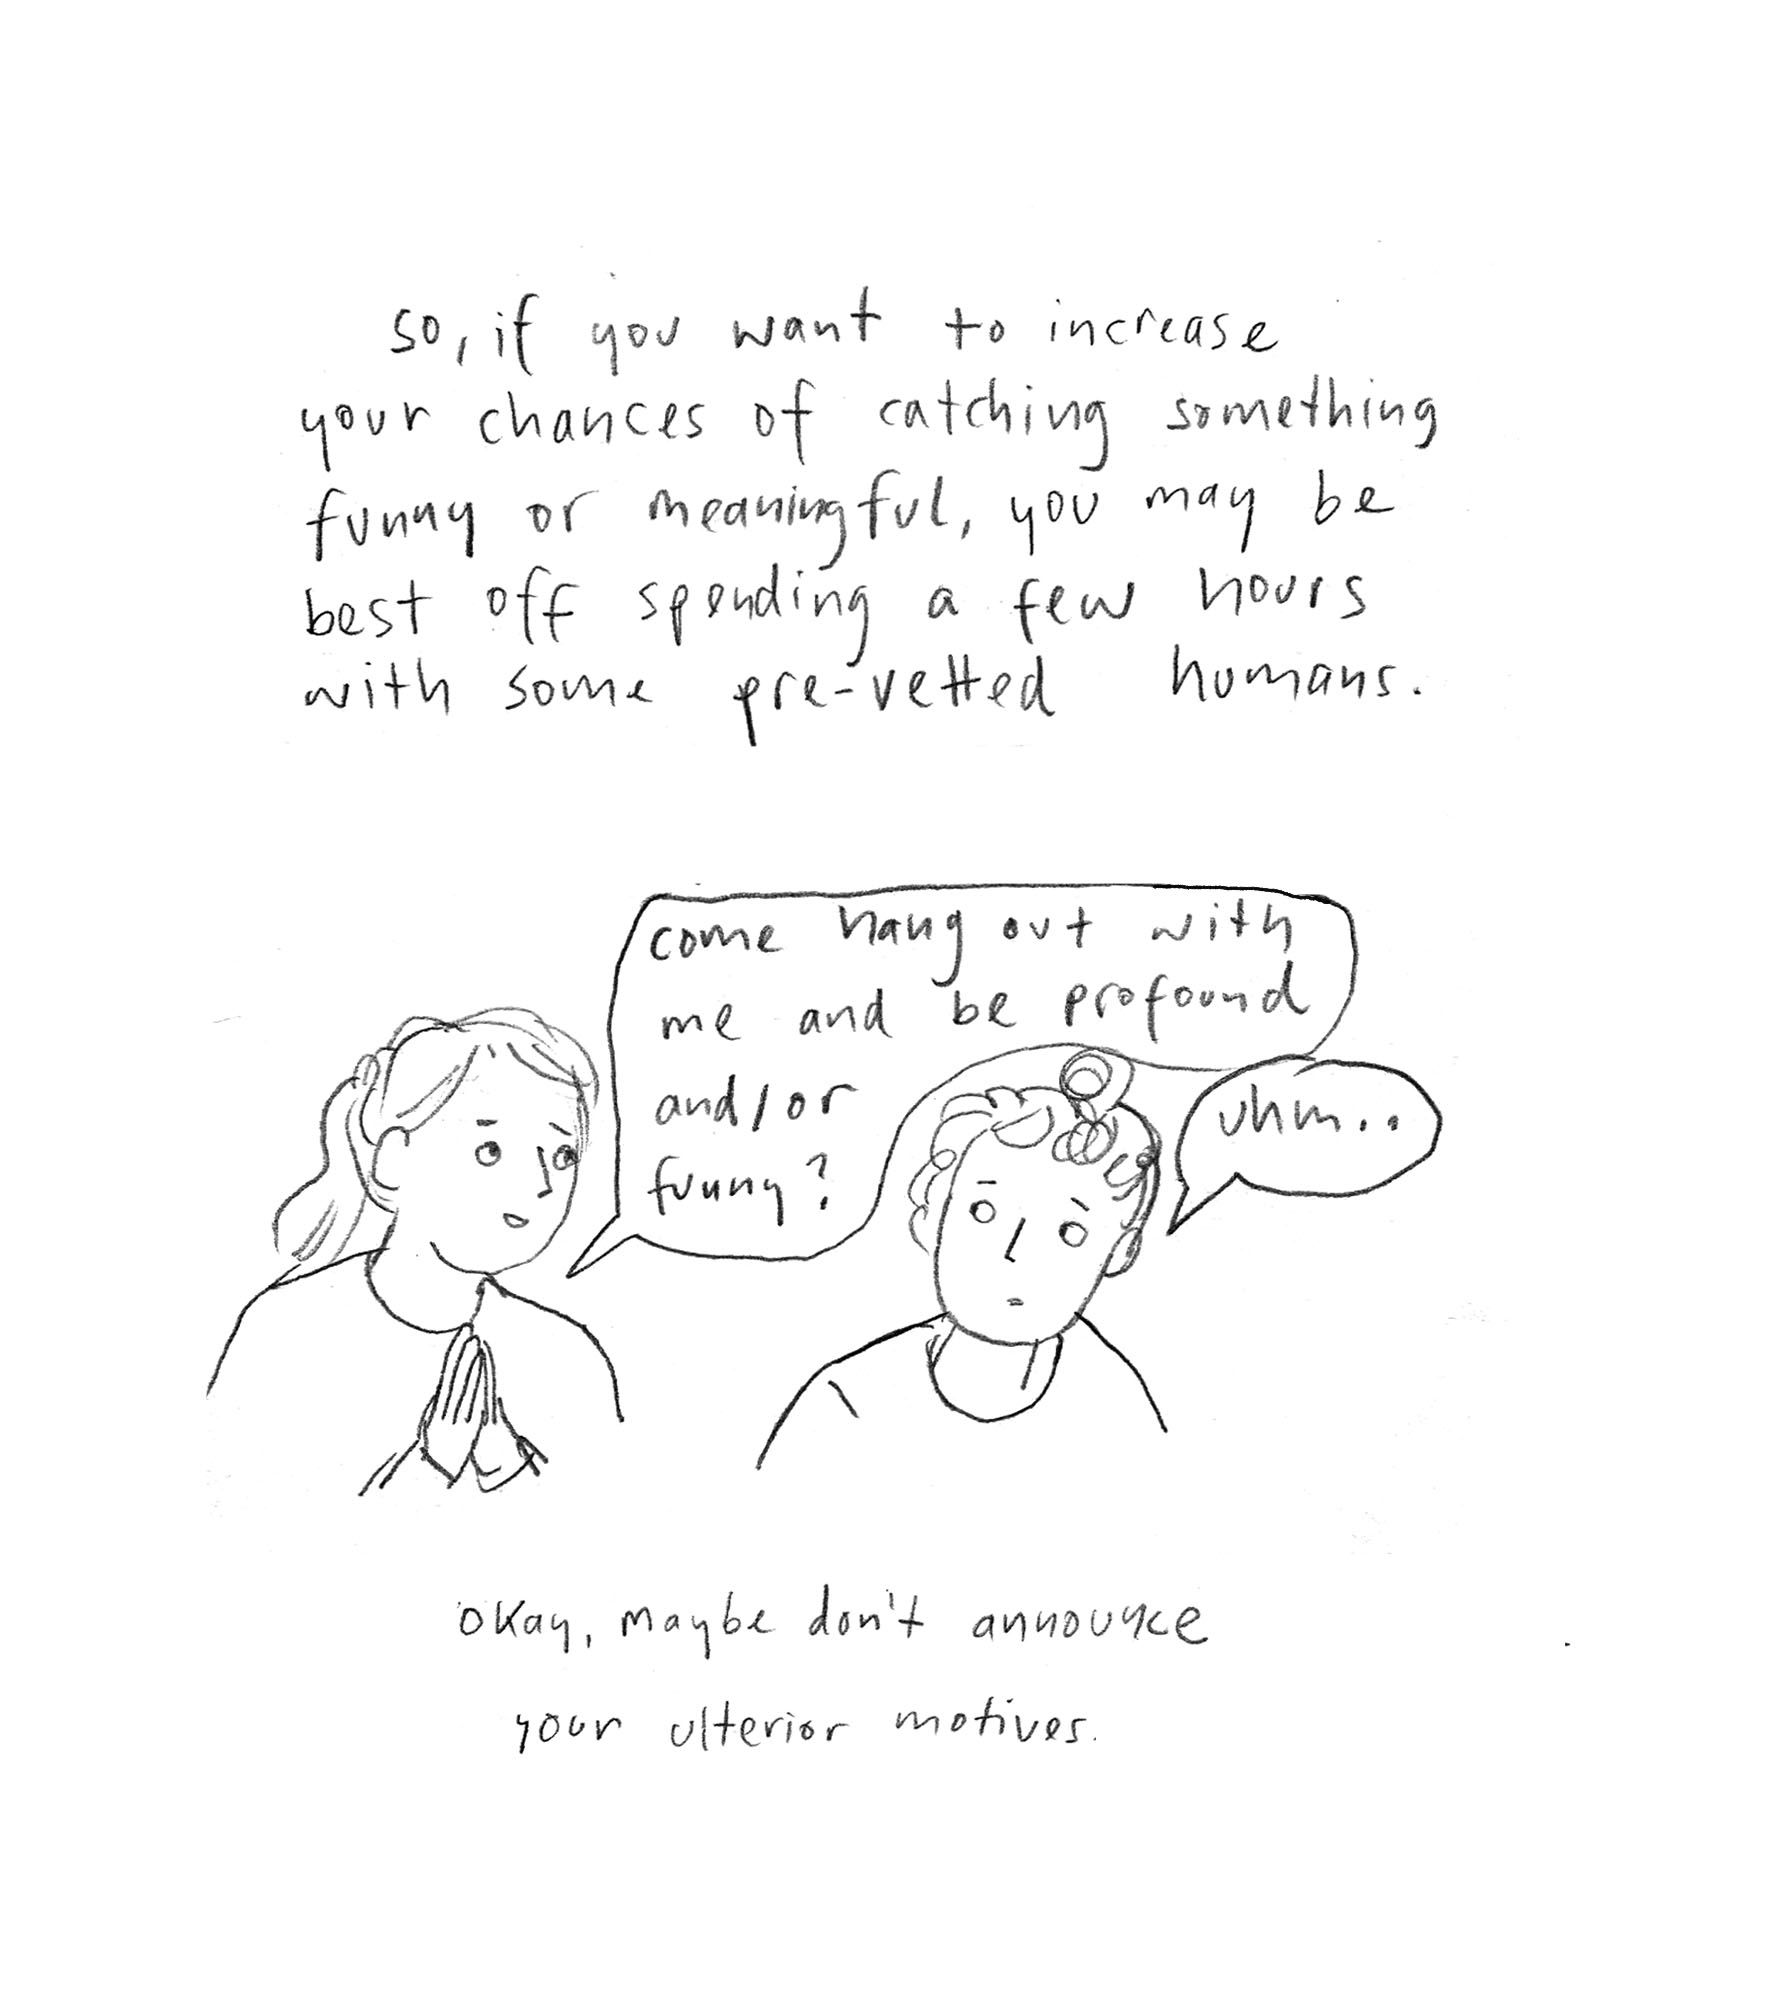 so, if you want to increase
your chances of catching something
funny or meaningful, you may be
best off spending a few hours
with some pre-vetted humans.
come hang out with
me and be profound
and/or
funny?
uhm..
okay, maybe don't announce
your ulterior motives.